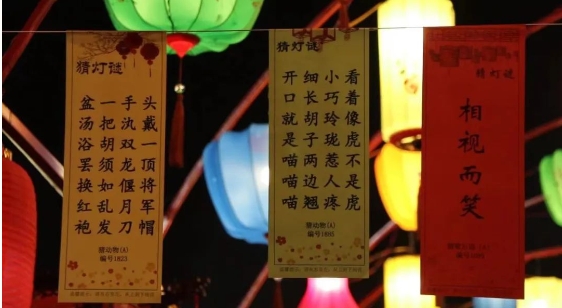 猜灯谜
头戴一顶将军帽
手执双龙偃月刀
一把胡须如乱发
盆汤浴罢换红袍
猜动物(A)
编号1823
猜灯谜
看着像虎不是虎
小巧玲珑惹人疼
细长胡子两边翘
开口就是喵喵喵
猜动物(A)
猜灯谜
相视而笑